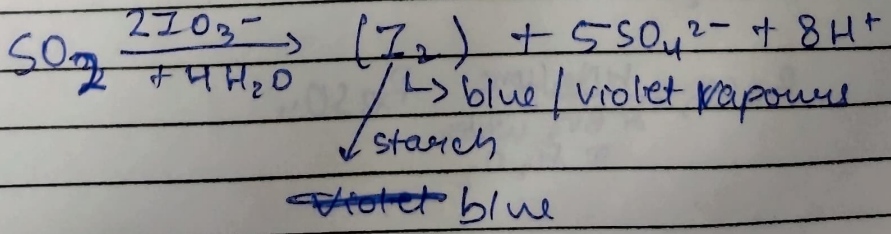 SO2 2IO3- → (I2) + 5SO4 2- + 8H+
+4H2O
↳ blue/violet vapours
↓ starch
violet blue